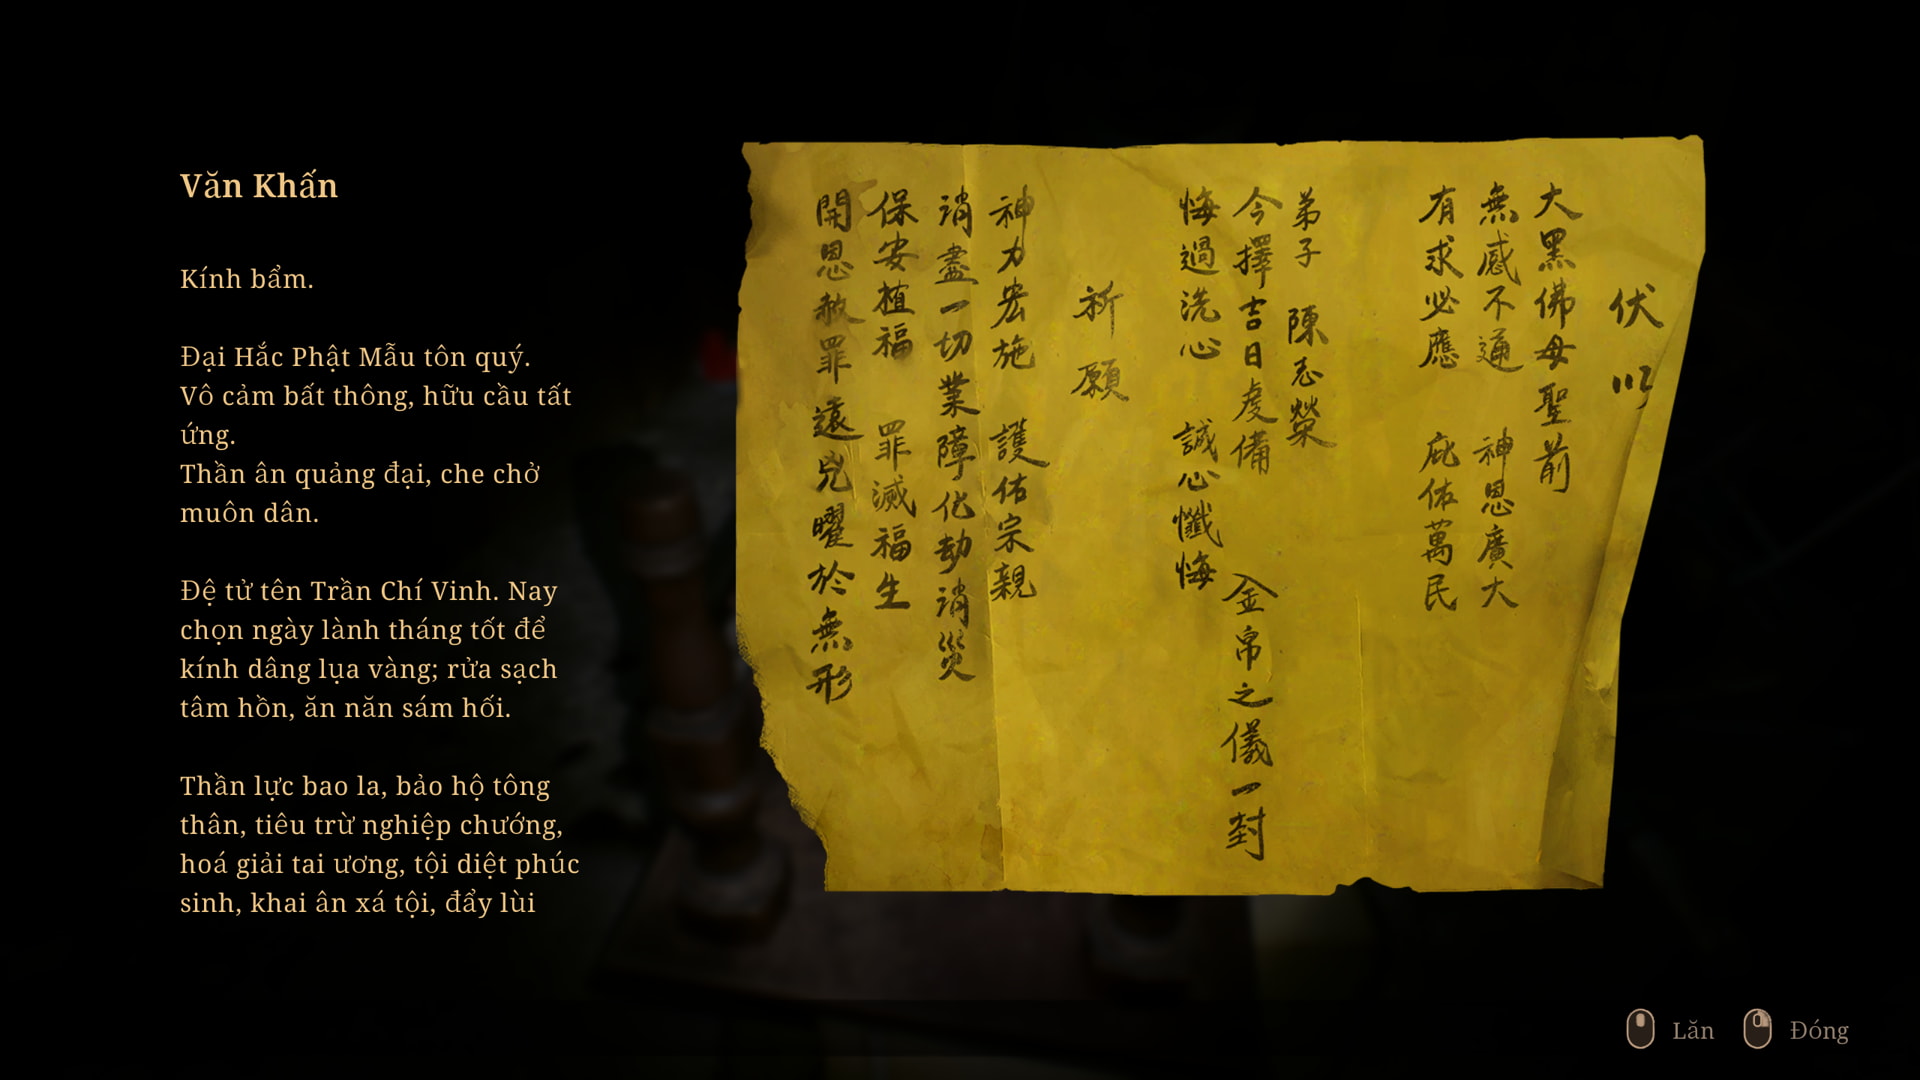 Văn Khấn
Kính bẩm.
Đại Hắc Phật Mẫu tôn quý.
Vô cảm bất thông, hữu cầu tất
ứng.
Thần ân quảng đại, che chở
muôn dân.
Đệ tử tên Trần Chí Vinh. Nay
chọn ngày lành tháng tốt để
kính dâng lụa vàng; rửa sạch
tâm hồn, ăn năn sám hối.
Thần lực bao la, bảo hộ tông
thân, tiêu trừ nghiệp chướng,
hoá giải tai ương, tội diệt phúc
sinh, khai ân xá tội, đẩy lùi
伏以
大黑佛母聖前
無感不通 神恩廣大
有求必應 庇佑萬民
弟子 陳志榮
今擇吉日虔備 金帛之儀一封
悔過洗心 誠心懺悔
祈願
神力宏施 護佑宗親
消盡一切業障化劫消災
保安植福 罪滅福生
開恩赦罪遠兇曜於無形
Lăn
Đóng